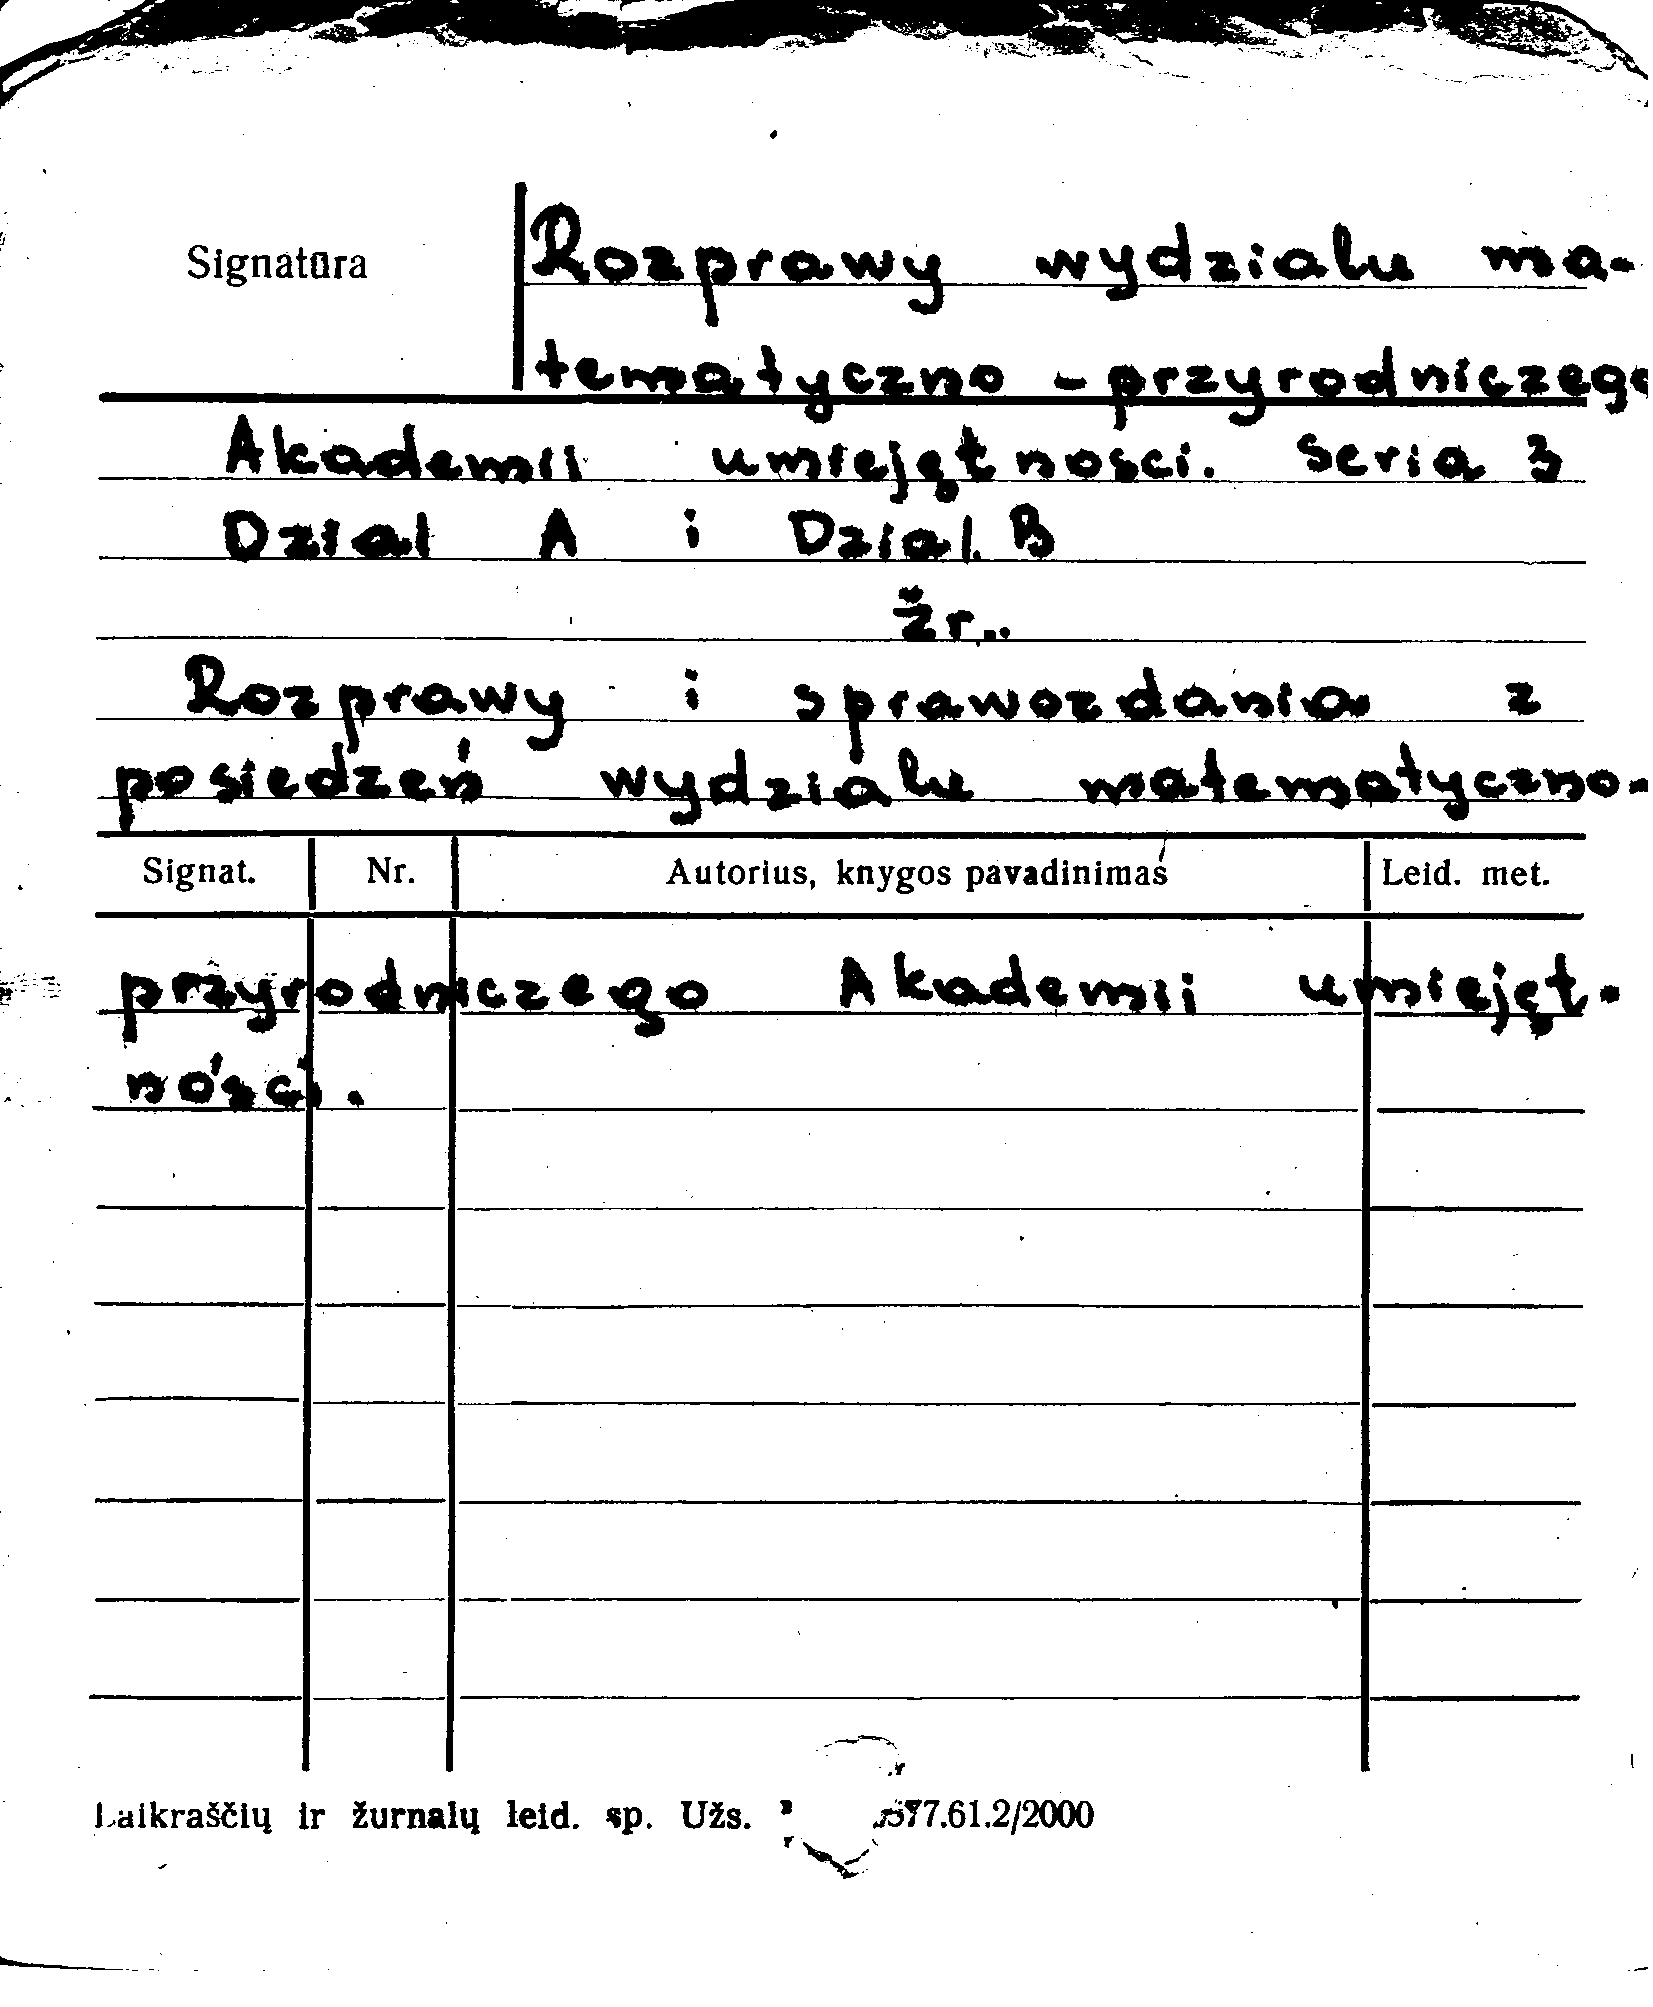 Signatūra
Rozprawy wydzialu ma-
tematyczno-przyrodniczego
Akademii umiejętnosci. Seria 3
Dzial A i Dzial B
žr.:
Rozprawy i sprawozdania z
posiedzeń wydzialu matematyczno-
Signat. Nr. Autorius, knygos pavadinimas Leid. met.
przyrodniczego Akademii umiejęt-
ności.
Laikraščių ir žurnalų leid. sp. Užs. 577.61.2/2000